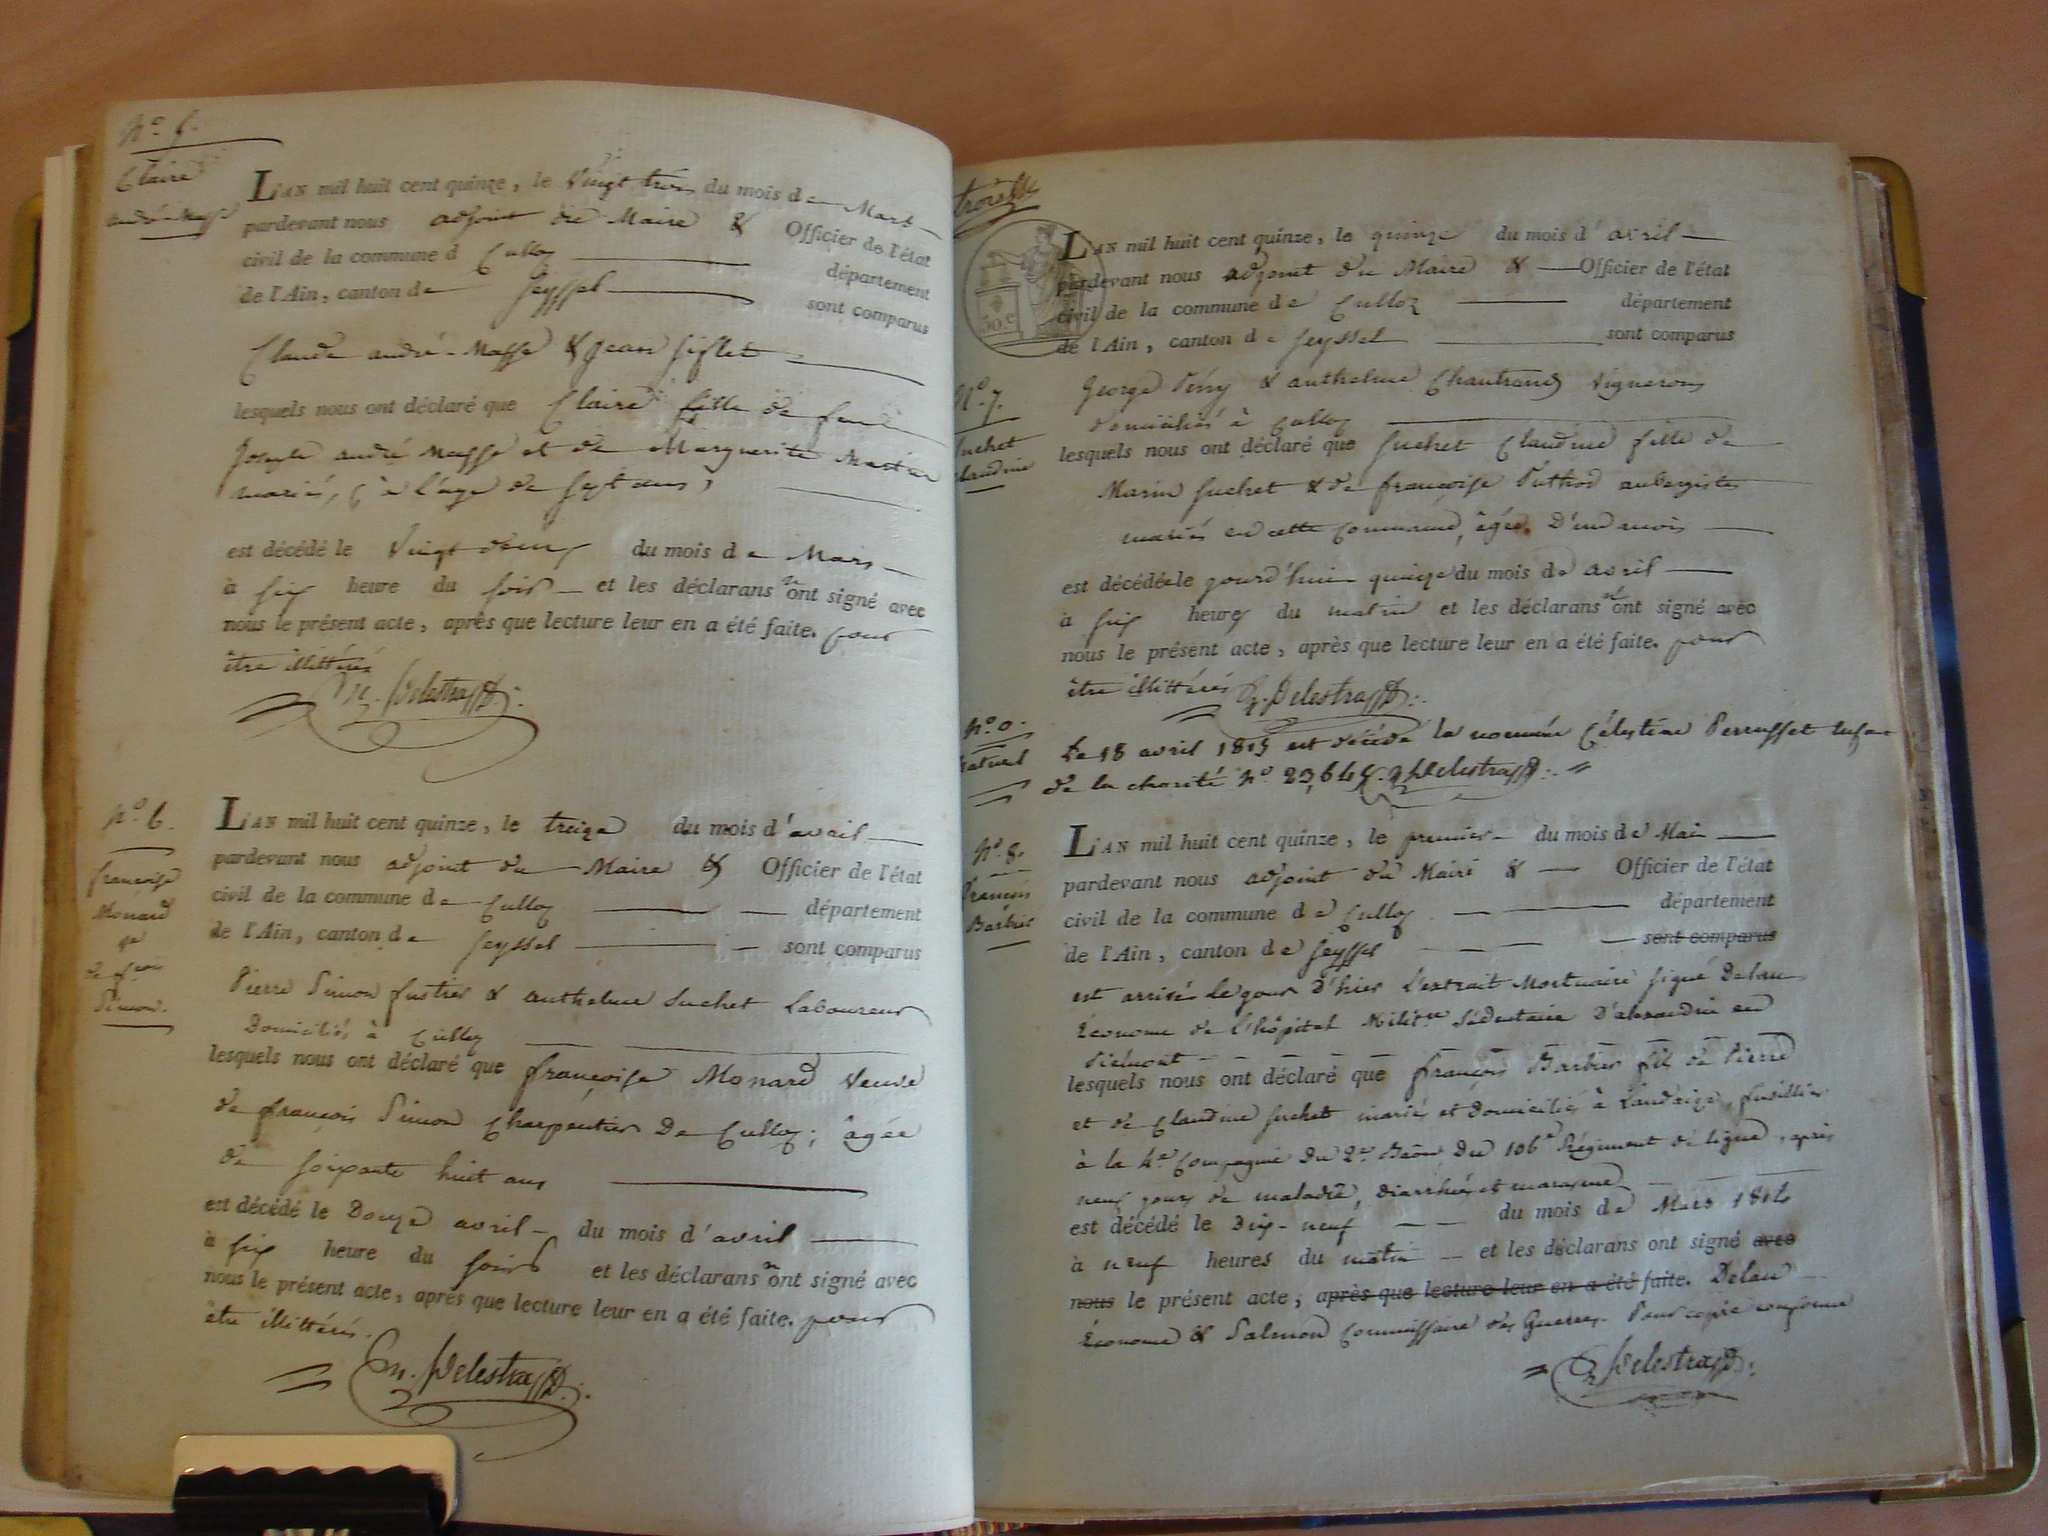 N.o 5.
Claire
andré-Masse
L'AN mil huit cent quinze, le Vingt trois du mois de Mars
pardevant nous adjoint du Maire & Officier de l'état
civil de la commune d Culloz département
de l'Ain, canton de Seyssel sont comparus
Claude andré-Masse & Jean Siflet
lesquels nous ont déclaré que Claire fille de feu
Joseph andré Masse et de Marguerite
mariés, à l'âge de sept ans,
est décédé le Vingt deux du mois de Mars
à six heure du soir et les déclarans n'ont signé avec
nous le présent acte, après que lecture leur en a été faite. pour
être illittérés
Delestraz
N.o 6.
françoise
Monard
ve
de fçois
Simon.
L'AN mil huit cent quinze, le treize du mois d'avril
pardevant nous adjoint du Maire & Officier de l'état
civil de la commune de Culloz département
de l'Ain, canton de Seyssel sont comparus
Pierre Simon & anthelme Suchet Laboureurs
Domiciliés à Culloz
lesquels nous ont déclaré que françoise Monard Veuve
de françois Simon Charpentier De Culloz; âgée
de soixante huit ans
est décédé le Douze avril du mois d'avril
à six heure du soir et les déclarans n'ont signé avec
nous le présent acte, après que lecture leur en a été faite. pour
être illittérés.
Delestraz
troisième
30 c
L'AN mil huit cent quinze, le quinze du mois d'avril
pardevant nous adjoint du Maire & Officier de l'état
civil de la commune de Culloz département
de l'Ain, canton de Seyssel sont comparus
N.o 7.
Suchet
Claudine
George Péry & anthelme Chautrand Vignerons
domiciliés à Culloz
lesquels nous ont déclaré que Suchet Claudine fille de
Marin Suchet & de françoise Puthod aubergiste
mariés en cette Commune, âgée D'un mois
est décédée le jourd'hui quinze du mois de avril
à six heures du matin et les déclarans n'ont signé avec
nous le présent acte, après que lecture leur en a été faite. pour
être illittérés Delestraz
N.o 0.
naturel
Le 18 avril 1815 est décédé la nommée Célestine Perrusset
de la charité N.o 23,645. Delestraz
N.o 8.
François
Barbier
L'AN mil huit cent quinze, le premier du mois de Mai
pardevant nous adjoint du Maire & Officier de l'état
civil de la commune de Culloz département
de l'Ain, canton de Seyssel sont comparus
est arrivés le jour D'hier L'extrait Mortuaire signé Delau
Économe de l'hôpital Milit.re Sédentaire D'alexandrie en
Piémont
lesquels nous ont déclaré que françois Barbier fils de Pierre
et de Claudine Suchet mariés et domiciliés à Landaize, fusillier
à la 4.e Compagnie Du 2.e Baon Du 106.e Régiment de ligne, après
neuf jours de maladie, Diarrhée et marasme
est décédé le Dix-neuf du mois de Mars 1814
à neuf heures du matin et les déclarans ont signé avec
nous le présent acte, après que lecture leur en a été faite. Delau
Économe & Salmon Commissaire des Guerres. Pour copie conforme
Delestraz